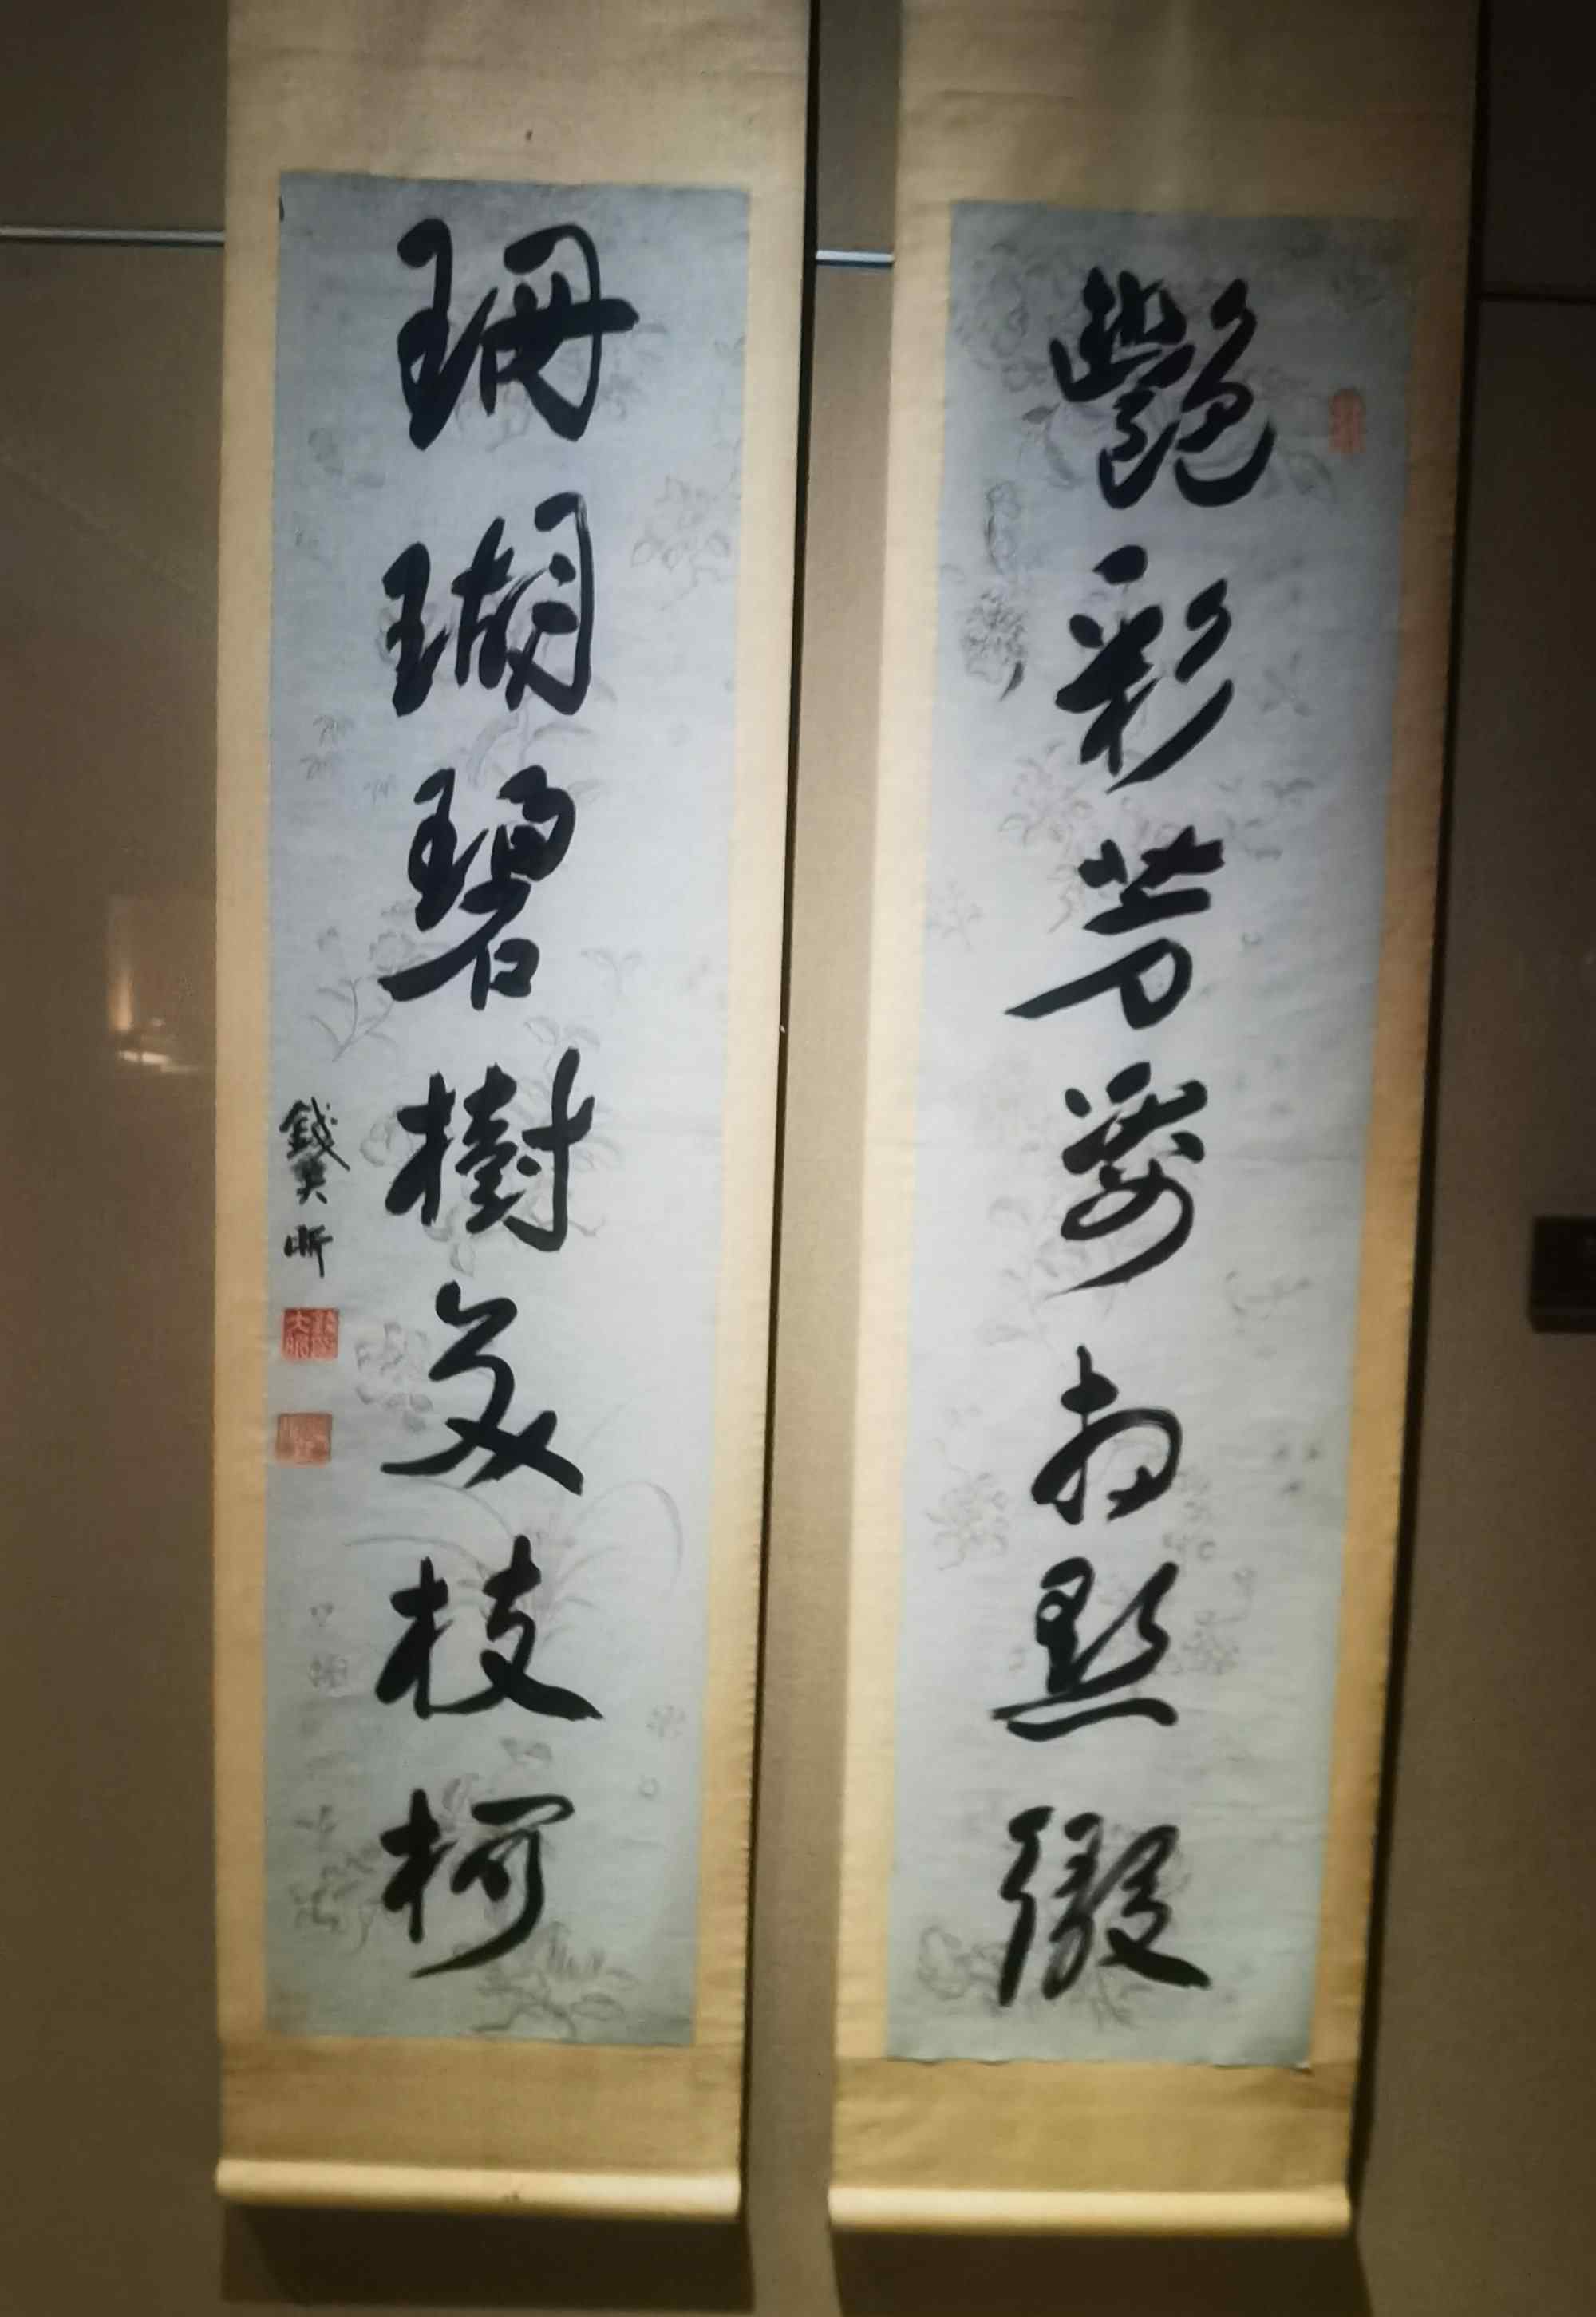 艷彩芳姿相點綴
珊瑚碧樹交枝柯
錢大昕